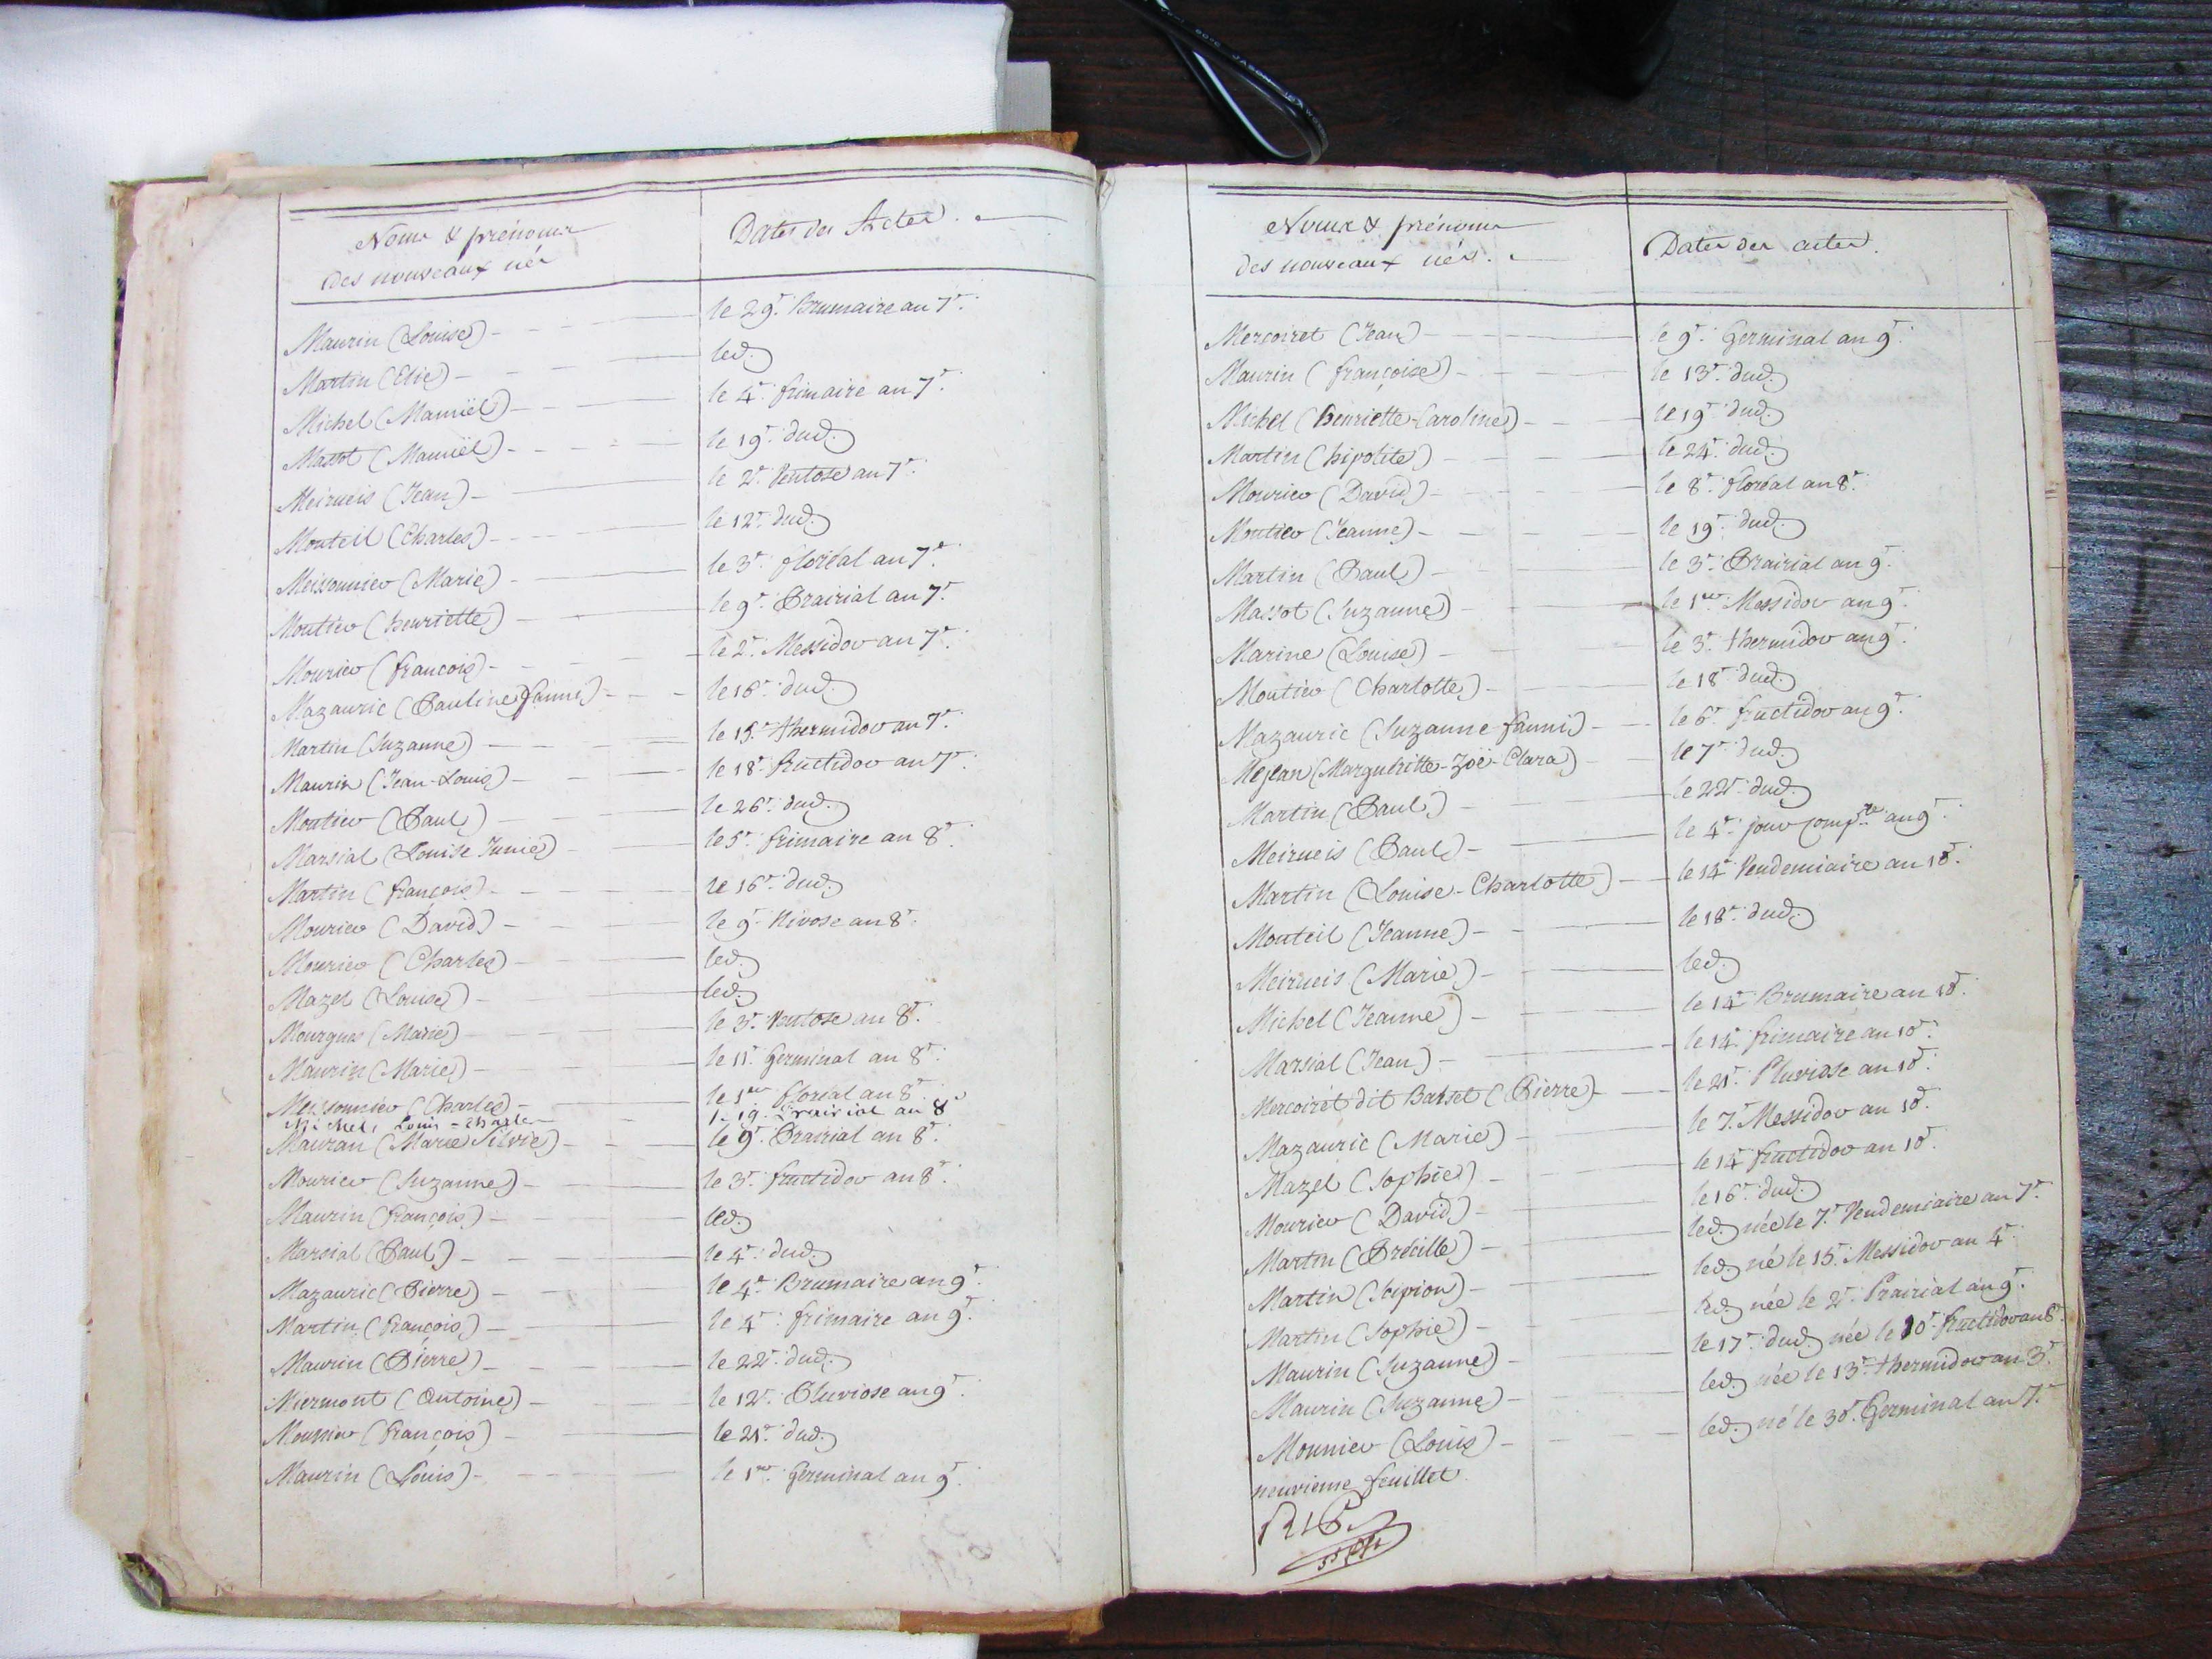 Noms & prénoms
des nouveaux nés
Dates des Actes.
Maurin (Louise) le 29e. Brumaire an 7e.
Martin (Elie) led.
Michel (Manuël) le 4e. frimaire an 7e.
Massot (Manuël) le 19e. dud.
Meirueis (Jean) le 2e. Ventose an 7e.
Monteil (Charles) le 12e. dud.
Meissonnier (Marie) le 3e. floréal an 7e.
Moutier (henriette) le 9e. Prairial an 7e.
Mourier (francois) le 2e. Messidor an 7e.
Mazauric (Pauline fanni) le 16e. dud.
Martin (Suzanne) le 15e. thermidor an 7e.
Maurin (Jean-Louis) le 18e. fructidor an 7e.
Moutier (Paul) le 26e. dud.
Marsial (Louise Junie) le 5e. frimaire an 8e.
Martin (françois) le 16e. dud.
Mourier (David) le 9e. Nivose an 8e.
Mourier (Charles) led.
Mazel (Louise) led.
Mourgues (Marie) le 3e. Ventose an 8e.
Maurin (Marie) le 11e. Germinal an 8e.
Meissonnier (Charles) le 1er. floréal an 8e.
Michel, Louis-Charles le 19. Prairial an 8e
Mauran (Marie Silvie) le 9e. Prairial an 8e.
Mourier (Suzanne) le 3e. fructidor an 8e.
Maurin (françois) led.
Marsial (Paul) le 4e. dud.
Mazauric (Pierre) le 4e. Brumaire an 9e.
Martin (françois) le 4e. frimaire an 9e.
Maurin (Pierre) le 22e. dud.
Miermont (Antoine) le 12e. Pluviose an 9e.
Mounier (françois) le 21e. dud.
Maurin (Louis) le 1er. Germinal an 9e.
Noms & prénoms
des nouveaux nés.
Dates des actes.
Mercoiret (Jean) le 9e. Germinal an 9e.
Maurin (françoise) le 13e. dud.
Michel (henriette-Caroline) le 19e. dud.
Martin (hipolite) le 24e. dud.
Mourier (David) le 8e. floréal an 8e.
Moutier (Jeanne) le 19e. dud.
Martin (Paul) le 3e. Prairial an 9e.
Massot (Suzanne) le 1er. Messidor an 9e.
Marine (Louise) le 3e. thermidor an 9e.
Moutier (Charlotte) le 18e. dud.
Mazauric (Suzanne-fanni) le 6e. fructidor an 9e.
Mejean (Margueritte-Zoë-Clara) le 7e. dud.
Martin (Paul) le 22e. dud.
Meirueis (Paul) le 4e. jour compre. an 9e.
Martin (Louise-Charlotte) le 14e Vendemiaire an 10e.
Monteil (Jeanne) le 18e. dud.
Meirueis (Marie) led.
Michel (Jeanne) le 14e Brumaire an 10e.
Marsial (Jean) le 14e frimaire an 10e.
Mercoiret dit Basset (Pierre) le 21e. Pluviose an 10e.
Mazauric (Marie) le 7e. Messidor an 10e.
Mazel (Sophie) le 14e fructidor an 10e.
Mourier (David) le 16e. dud.
Martin (Précille) led. née le 7e. Vendemiaire an 7e.
Martin (Scipion) led. né le 15e. Messidor an 4e.
Martin (Sophie) led. née le 2e. Prairial an 9e.
Maurin (Suzanne) le 17e. dud. née le 10e. fructidor an 6e.
Maurin (Suzanne) led. née le 13e. thermidor an 3e.
Mounier (Louis) led. né le 30e. Germinal an 7e.
neuvieme feuillet.